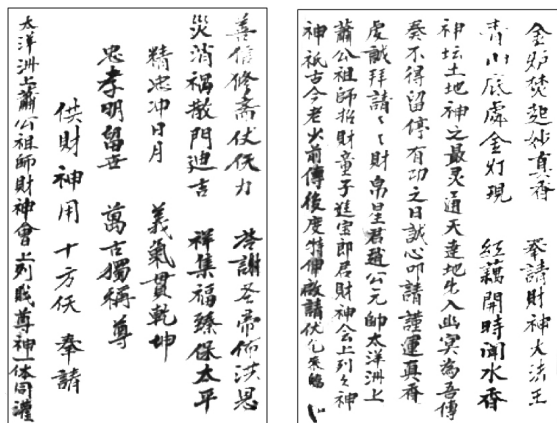 金炉焚起妙真香　奉請財神大法王
青山底處金灯現　紅藕開時聞水香
神坛土地神之最灵通天達地出入幽冥為吾傳
奏不得留停有功之日誠心叩請謹運真香
虔誠拜請〻〻財帛星君趙公元帥太洋洲上
蕭公祖師招財童子進宝郎君財神会上列〻神
神祇古今老少前傳後度特伸啟請伏乞來臨
善信修斋伏仗力　答謝圣帝佈洪恩
災消禍散門迪吉　祥集福臻保太平
精忠冲日月　義氣貫乾坤
忠孝明留世　萬古獨稱尊
供財神用　十方仸　奉請
太洋洲上蕭公祖師財神會上列賍尊神一体同渥